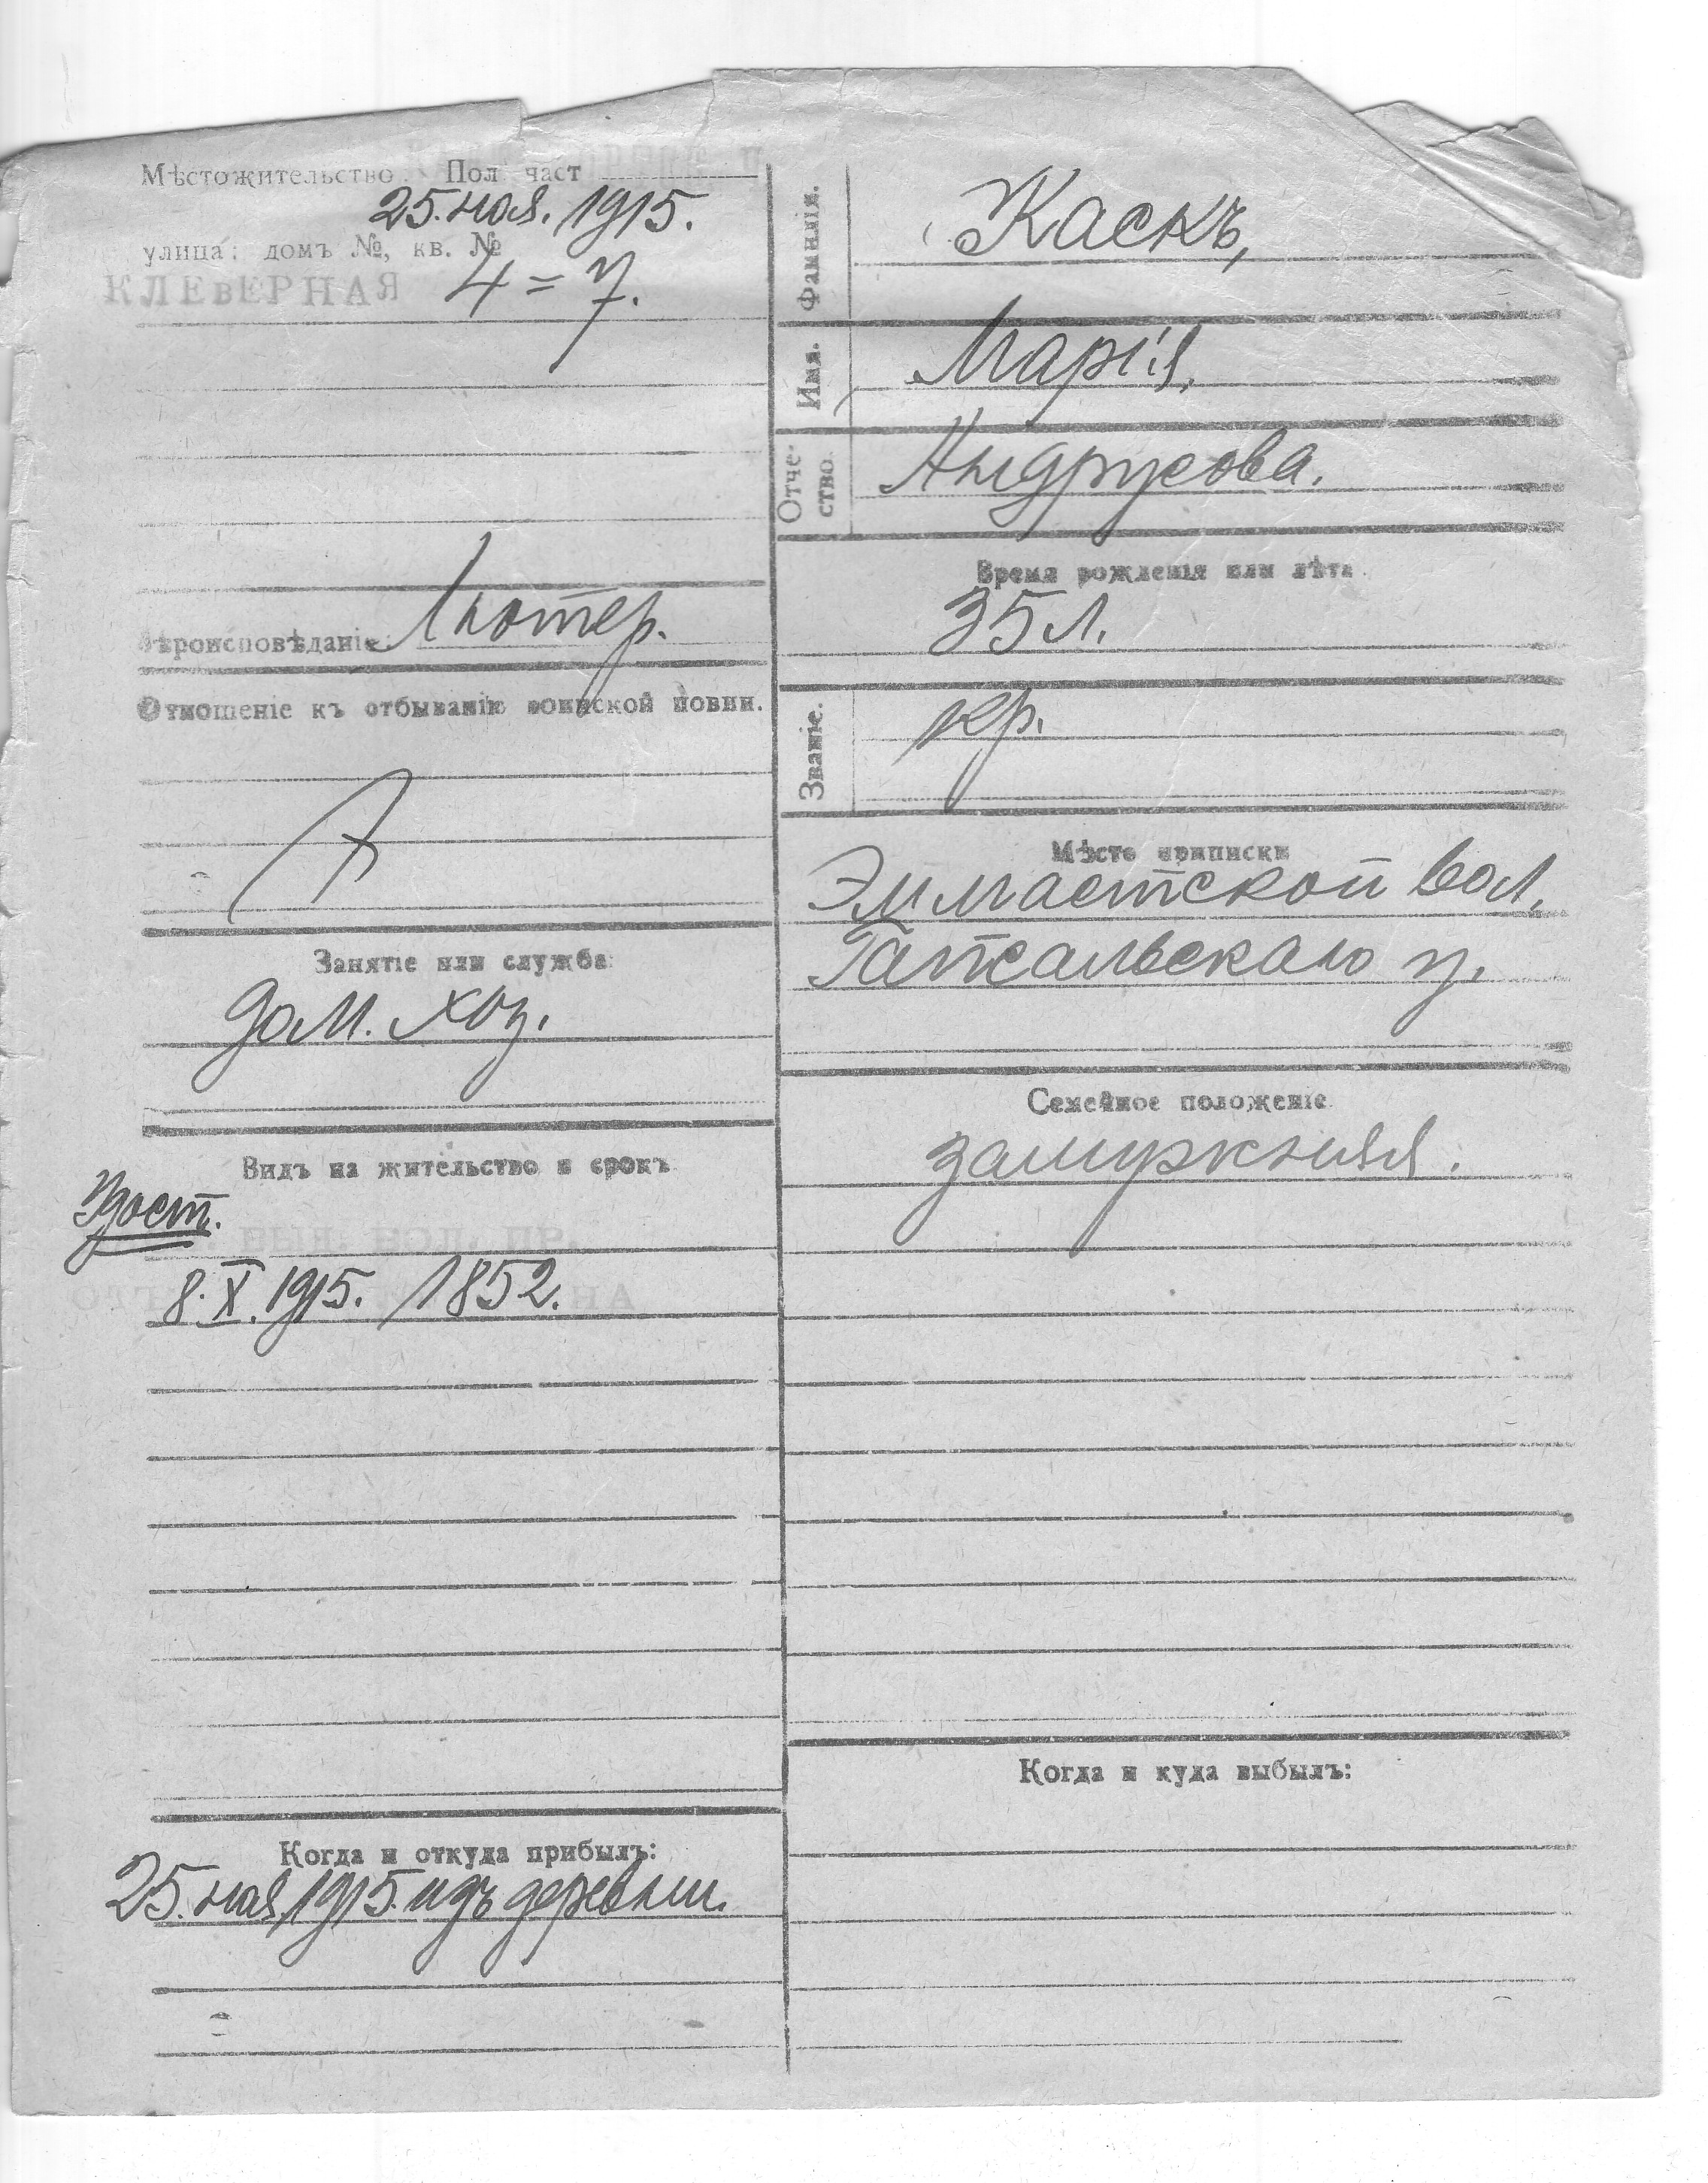 Мѣстожительство: Пол. част
25. ноя. 1915.
улица: домъ №, кв. №
КЛЕВЕРНАЯ 4 = 7.
Вѣроисповѣданіе: Лютер.
Отношеніе къ отбыванію воинской повин.
Занятіе или служба
дом. хоз.
Видъ на жительство и срокъ
Удост.
8. X. 1915. 1852.
Когда и откуда прибылъ:
25. ноя. 1915. изъ деревни.
Фамилія. Каскъ,
Имя. Марія,
Отче-
ство. Андрусова.
Время рожденія или лѣта
35 л.
Званіе. кр.
Мѣсто приписки
Эммастской вол.
Гапсальскаго у.
Семейное положеніе
замужняя.
Когда и куда выбылъ: